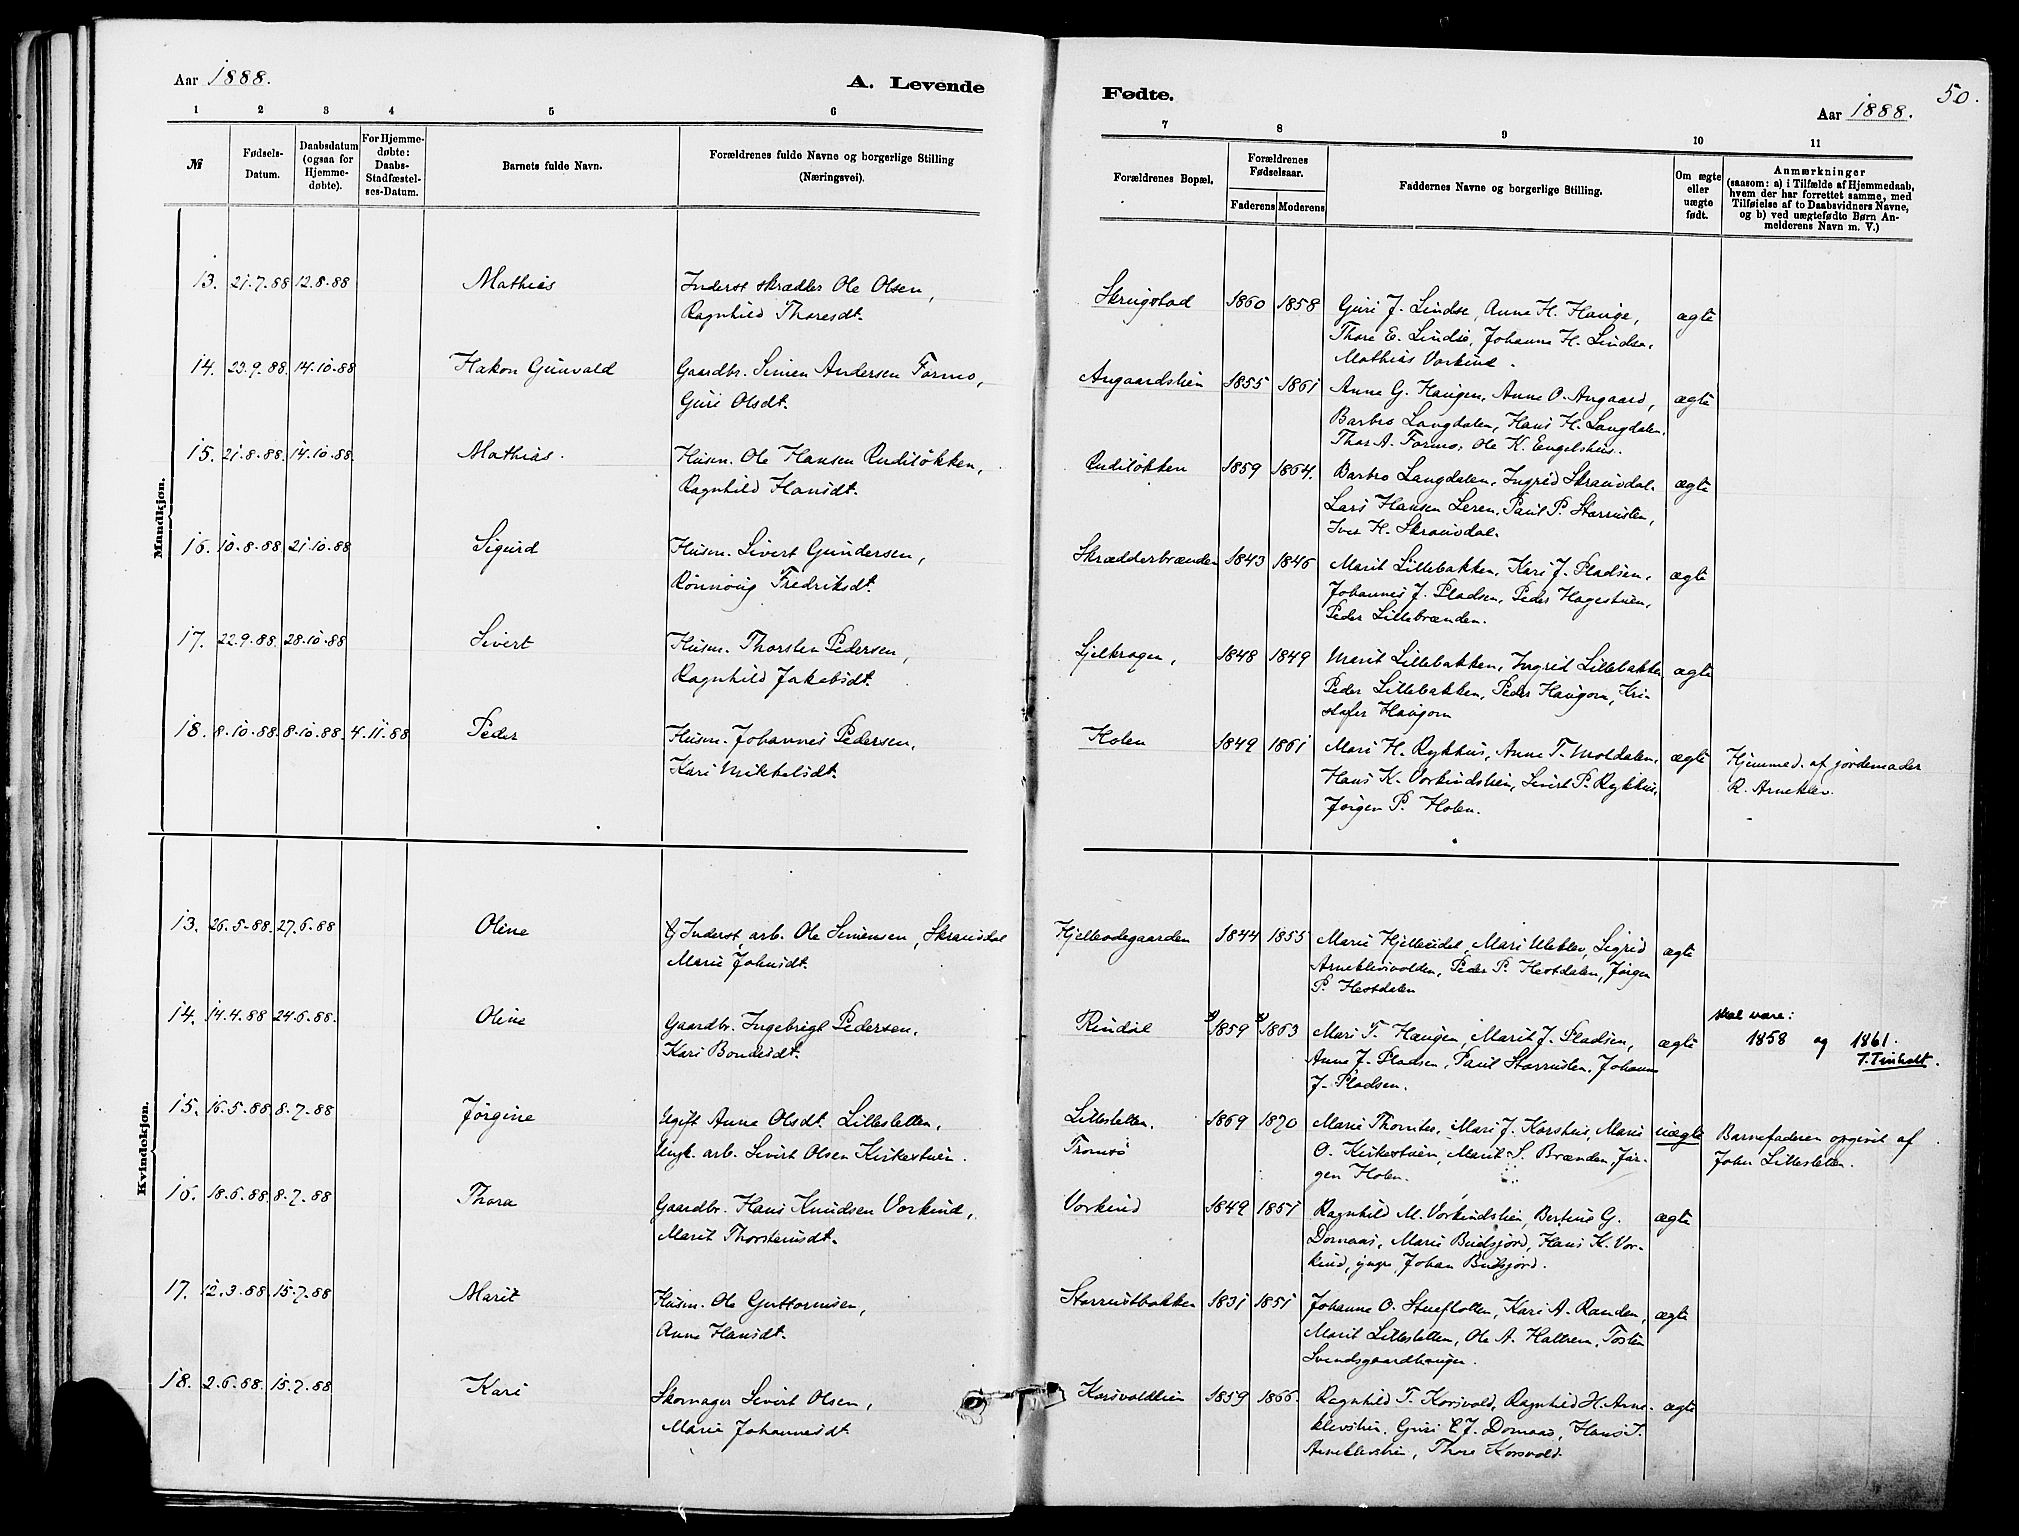 Aar 1888.
A. Levende
Fødte.
Aar 1888.
50.
1 2 3 4 5 6
7 8 9 10 11
№
Fødsels-
Datum.
Daabsdatum
(ogsaa for
Hjemme-
døbte).
For Hjemme-
døbte:
Daabs-
Stadfæstel-
ses-Datum.
Barnets fulde Navn.
Forældrenes fulde Navne og borgerlige Stilling
(Næringsvei).
Forældrenes Bopæl.
Forældrenes
Fødselsaar.
Faderens Moderens
Faddernes Navne og borgerlige Stilling.
Om ægte
eller
uægte
født.
Anmærkninger
(saasom: a) i Tilfælde af Hjemmedaab,
hvem der har forrettet samme, med
Tilføielse af to Daabsvidners Navne,
og b) ved uægtefødte Børn An-
melderens Navn m. V.)
Mandkjøn.
13. 21.7.88 12.8.88 Mathias Inderst skrædder Ole Olsen,
Ragnhild Thoresdt.
Skrugstad 1860 1858 Guri J. Lindsø, Anne H. Hauge, ægte
Thore E. Lindsø, Johanne H. Lindsø,
Mathias Vorkind.
14. 23.9.88. 14.10.88 Hakon Gunvald Gaardbr. Simen Andersen Formo,
Guri Olsdt.
Angaardslien 1855 1861 Anne G. Haugen, Anne O. Angaard, ægte
Barbro Langdalen, Hans H. Langdalen,
Thor A. Formo, Ole K. Engelshus.
15. 21.8.88. 14.10.88 Mathias. Husm. Ole Hansen Rudiløkken,
Ragnhild Hansdt.
Rudiløkken 1859 1864. Barbro Langdalen, Ingrid Skramdal. ægte
Lars Hansen Leren, Paul P. Storrusten,
Iver H. Skramdal.
16. 10.8.88 21.10.88 Sigurd Husm. Sivert Gundersen,
Rønnoug Fredriksdt.
Skrædderbrænden 1843 1846 Marit Lillebakken, Kari J. Pladsen, ægte
Johannes J. Pladsen, Peder Hagestuen,
Peder Lillebrænden.
17. 22.9.88. 28.10.88 Sivert Husm. Thorsten Pedersen,
Ragnhild Jakobsdt.
Sjelkragen, 1848 1849 Marit Lillebakken, Ingrid Lillebakken ægte
Peder Lillebakken, Peder Haugom, Kri-
stofer Haugom
18. 8.10.88. 8.10.88. 4.11.88 Peder Husm. Johannes Pedersen,
Kari Mikkelsdt.
Holen 1849 1861 Mari H. Rykhus, Anne T. Moldalen, ægte Hjemmed. af jordemoder
Hans K. Vorkindslien, Sivert P. Rykhus, R. Arneklev.
Jørgen P. Holen.
Kvindekjøn.
13. 26.5.88. 27.6.88 Oline Inderst, arb. Ole Simensen, Skramdal
Marie Johnsdt.
Hjelleodegaarden 1844 1855 Mari Uleklev, Sigrid ægte
Arneklevsvolden, Peder P. Hestdalen, Jørgen
P. Hestdalen
14. 14.4.88 24.6.88. Oline Gaardbr. Ingebrigt Pedersen,
Kari Bondesdt.
Rindal 1859 1863 Mari T. Haugen, Marit J. Pladsen, ægte skal være:
1858 og 1861.
Anne J. Pladsen, Paul Storrusten, Johann
J. Pladsen.
15. 16.5.88. 8.7.88 Jørgine Ugift Anne Olsdt. Lillesletten,
Ungk. arb. Sivert Olsen Kirkestuen.
Lillesletten. 1869 1870 Mari J. Korshus, Maria uægte Barnefaderen opgivet af
Tromsø O. Kirkestuen, Marit S. Brænden, Jør- John Lillesletten.
gen Holen.
16. 18.6.88. 8.7.88 Thora Gaardbr. Hans Knudsen Vorkind,
Marit Thorstensdt.
Vorkind 1849 1851 Ragnhild M. Vorkindslien, Bertine G. ægte
Dornaas, Marie Budsjord, Hans K. Vor-
kind, yngre, Johan Budsjord.
17. 12.3.88. 15.7.88 Marit Husm. Ole Guttormsen,
Anne Hansdt.
Storrustbakken 1831 1851 Johanne O. Stuefloten, Kari A. Randen, ægte
Marit Lillesletten, Ole A. Hattrem, Tosten
Svendsgaardhaugen.
18. 2.6.88. 15.7.88 Kari Skomager Sivert Olsen,
Marie Johannesdt
Korsvoldlien 1859 1866. Ragnhild T. Korsvold, Ragnhild H. Arne- ægte
klevslien, Guri E. J. Dornaas, Hans T.
Arneklevslien, Thore Korsvold.